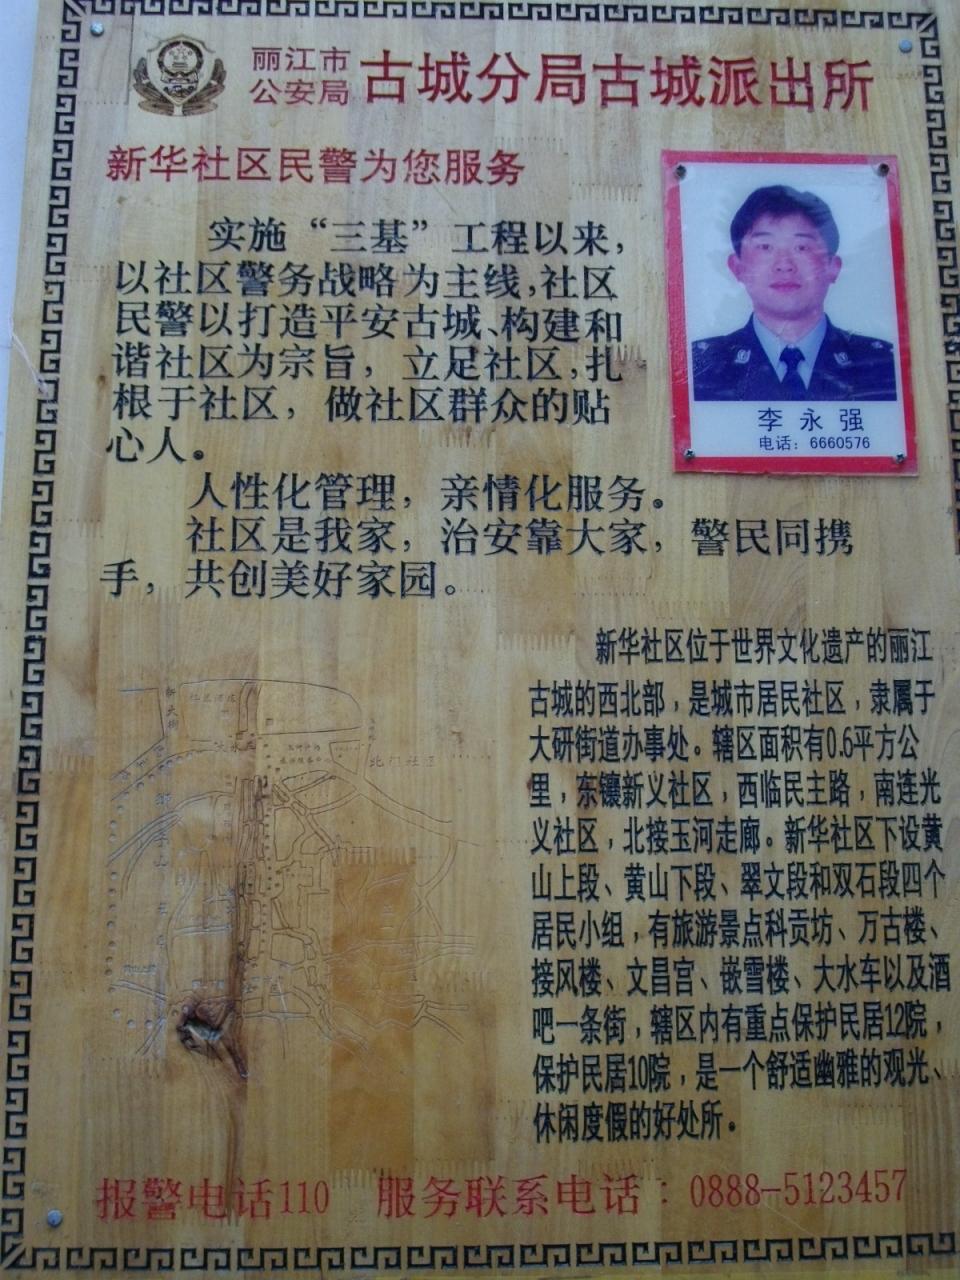 丽江市
公安局
古城分局古城派出所
新华社区民警为您服务
实施“三基”工程以来，
以社区警务战略为主线，社区
民警以打造平安古城、构建和
谐社区为宗旨，立足社区，扎
根于社区，做社区群众的贴
心人。
李永强
电话：6660576
人性化管理，亲情化服务。
社区是我家，治安靠大家，警民同携
手，共创美好家园。
新华社区位于世界文化遗产的丽江
古城的西北部，是城市居民社区，隶属于
大研街道办事处。辖区面积有0.6平方公
里，东镶新义社区，西临民主路，南连光
义社区，北接玉河走廊。新华社区下设黄
山上段、黄山下段、翠文段和双石段四个
居民小组，有旅游景点科贡坊、万古楼、
接风楼、文昌宫、嵌雪楼、大水车以及酒
吧一条街，辖区内有重点保护民居12院，
保护民居10院，是一个舒适幽雅的观光、
休闲度假的好处所。
北门社区
报警电话110 服务联系电话：0888-5123457